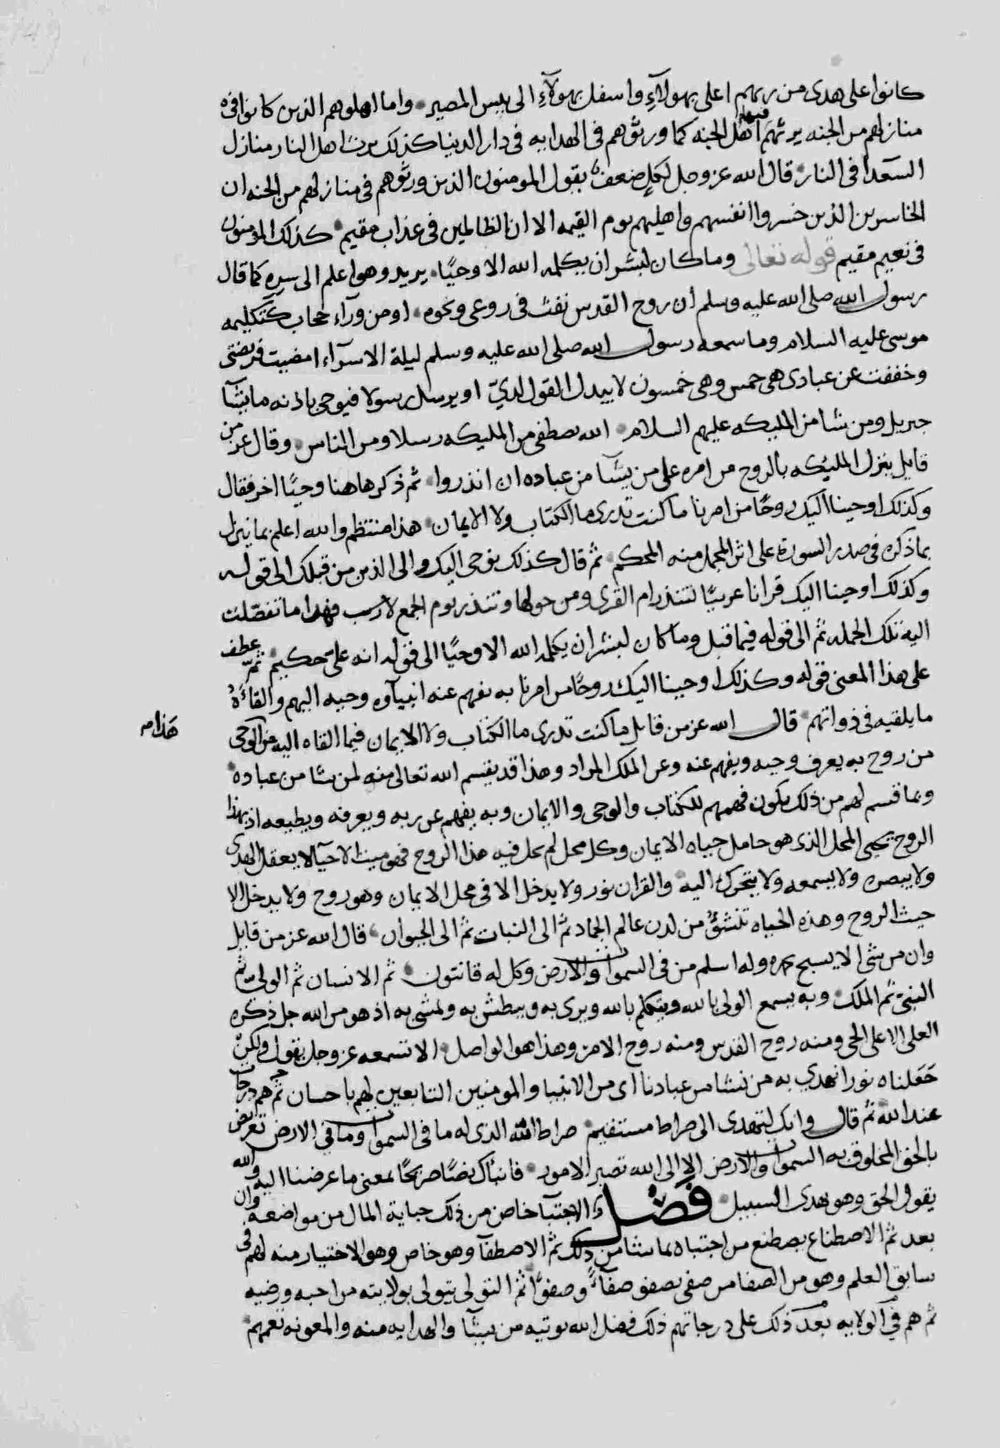 كانوا على هدى من ربهم اعلى بهولاء واسفل بهولاء الى بيس المصير واما اهلوهم الذين كانوا في
منازلهم من الجنه يرثهم فيها اهل الجنه كما ورثوهم في الهدايه في دار الدنيا كذلك يرث اهل النار منازل
السعدا في النار قال الله عز وجل لكل ضعف يقول المومنون الذين ورثوهم في منازلهم من الجنه ان
الخاسرين الذين خسروا انفسهم واهليهم يوم القيمه الا ان الظالمين في عذاب مقيم كذلك المومنون
في نعيم مقيم قوله تعالى وما كان لبشر ان يكلمه الله الا وحيًا يريد وهو اعلم الى سره كما قال
رسول الله صلى الله عليه وسلم ان روح القدس نفث في روعي ونحوه او من ورآء حجاب كتكليمه
موسى عليه السلام وما سمعه رسول الله صلى الله عليه وسلم ليلة الاسرآء امضيت فريضتي
وخففت عن عبادي هي خمس وهي خمسون لا يبدل القول لديّ او يرسل رسولا فيوحي باذنه ما يشآ
جبريل ومن شا من المليكه عليهم السلام الله يصطفي من المليكه رسلا ومن الناس وقال عز من
قايل ينزل المليكه بالروح من امره على من يشآ من عباده ان انذروا ثم ذكر هاهنا وحيًا اخر فقال
وكذلك اوحينا اليك روحًا من امرنا ما كنت تدري ما الكتاب ولا الايمان هذا منتظم والله اعلم بما ينزل
بما ذكره في صدر السورة على اثر المجمل منه المحكم ثم قال كذلك يوحي اليك والى الذين من قبلك الى قوله
وكذلك اوحينا اليك قرانا عربيًا لتنذر ام القرى ومن حولها وتنذر يوم الجمع لا ريب فيه فهذا ما تفصلت
اليه تلك الجمله ثم الى قوله فيما قبل وما كان لبشر ان يكلمه الله الا وحيًا الى قوله انه علي حكيم ثم عطف
على هذا المعنى قوله وكذلك اوحينا اليك روحًا من امرنا به يفهم عنه انبيآوه وحيه اليهم والقآءهُ
ما يلقيه في ذواتهم قال الله عز من قايل ما كنت تدري ما الكتاب ولا الايمان فيما القاه اليه من الوحي
هذا م
من روح به يعرف وحيه ويفهم عنه وعن الملك المراد وهذا قد يقسم الله تعالى منه لمن شا من عباده
وبما قسم لهم من ذلك يكون فهمهم للكتاب والوحي والايمان وبه يفهم عن ربه ويعرفه ويطيعه اذ بهذا
الروح يحيى المحل الذي هو حامل حياه الايمان وكل محل لم يحل فيه هذا الروح فهو ميت الاحيا لا يعقل الهدى
ولا يبصره ولا يسمعه ولا يتحرك اليه والقران نور ولا يدخل الا في محل الايمان وهو روح ولا يدخل الا
حيث الروح وهذه الحياه تنشؤ من لدن عالم الجماد ثم الى النبات ثم الى الحيوان قال الله عز من قايل
وان من شى الا يسبح بحمده وله اسلم من في السموات والارض وكل له قانتون ثم الانسان ثم الولي ثم
النبي ثم الملك وبه يسمع الولي بالله ويتكلم بالله ويرى به ويبطش به ويمشي به اذ هو من الله جل ذكره
العلي الاعلى الحي ومنه روح القدس ومنه روح الامر وهذا هو الواصل الا تسمعه عز وجل يقول ولكن
جَعَلناه نورا نهدي به من نشا من عبادنا اي من الانبيا والمومنين التابعين لهم باحسان ثم هم درجات
عند الله ثم قال وانك لتهدي الى صراط مستقيم صراط الله الذي له ما في السموات وما في الارض تعريض
بالحق المخلوق به السموات والارض الا الى الله تصير الامور فانباك نصًا صريحًا بمعنى ما عرضنا اليه والله
يقول الحق وهو يهدي السبيل فصل والاجتبآ خاص من ذلك جباية المال من مواضعه وان
بعد ثم الاصطناع يصطنع من اجتباه لما شا من ذلك ثم الاصطفآ وهو خاص وهو الاختيار منه لهم في
سابق العلم وهو من الصفا من صفى يصفو صفآءً وصفوًا ثم التولي يتولى بولايته من احبه ورضيه
ثم هم في الولايه بعد ذلك على درجاتهم ذلك فضل الله يوتيه من يشآ والهدايه منه والمعونه تعمهم